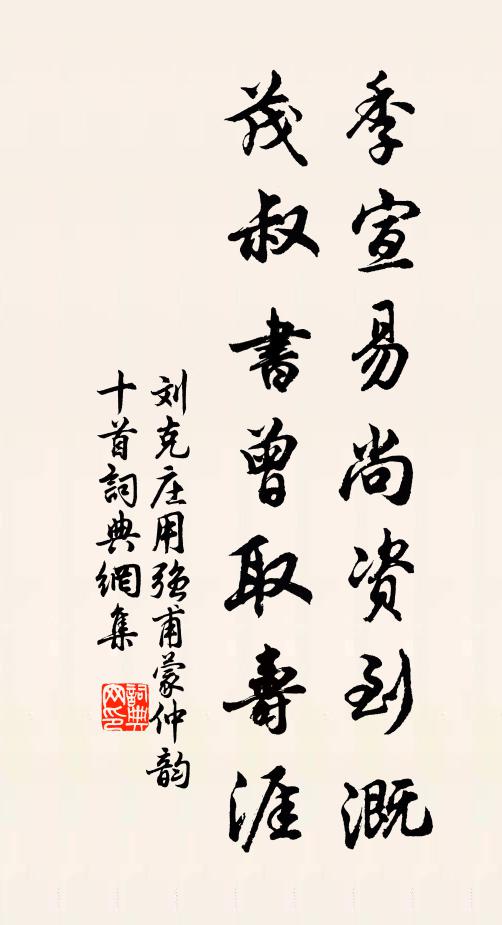 季宣易尚资到溉
茂叔書曾取壽涯
刘克庄用強甫蒙仲韵
十首詞典網集
詞典网印